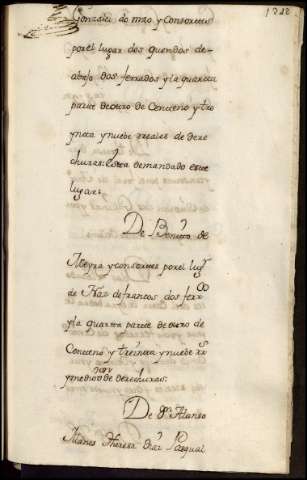 Gonzalez do mao y consortes
por el lugar dos quendos de
abajo dos ferrados y la quarta
parte de otro de Centeno y tre
ynta y nuebe reales de dere
churas: esta demandado este
lugar:
De Benito de
Neyra y consortes por el lug.r
de Haz de francos dos ferr.os
y la quarta parte de otro de
Centeno y treinta y nuebe rr.s
y medio de derechuras:
De D.n Alonso
Theresa Diaz Pasqual